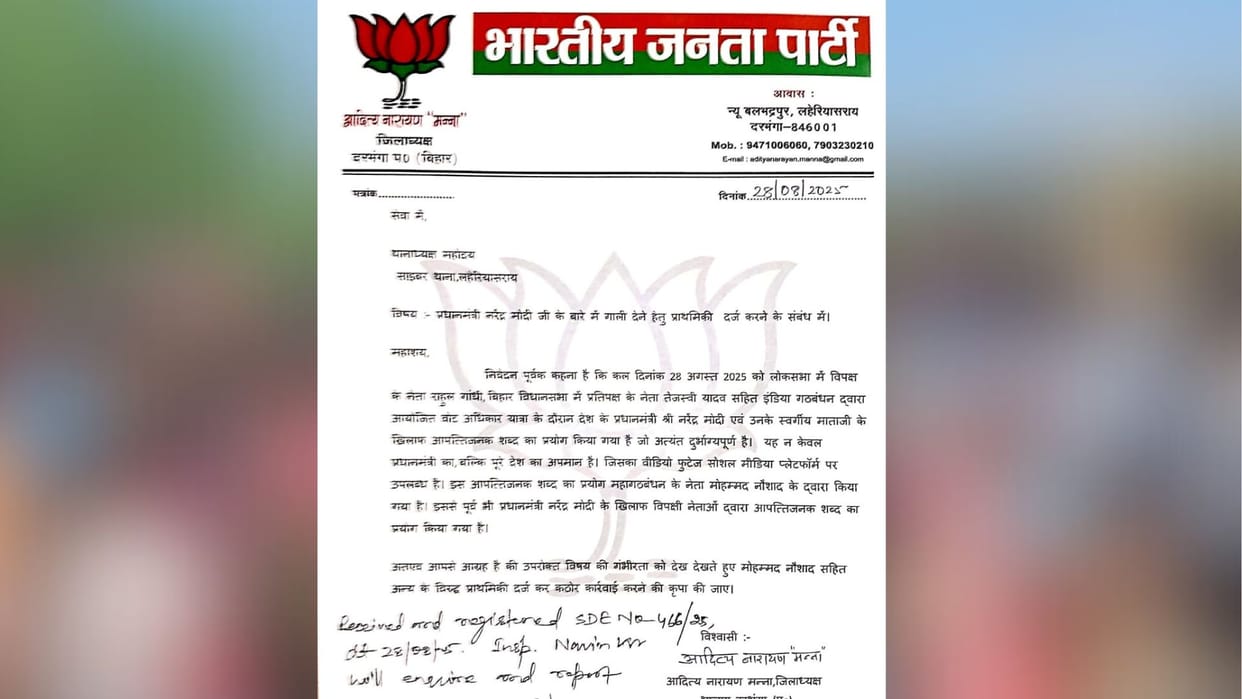 भारतीय जनता पार्टी
आदित्य नारायण "मन्ना"
जिलाध्यक्ष
दरभंगा प० (बिहार)
आवास :
न्यू बलभद्रपुर, लहेरियासराय
दरभंगा–846001
Mob. : 9471006060, 7903230210
E-mail : adityanarayan.manna@gmail.com
पत्रांक
दिनांक 28/08/2025
सेवा में,
थानाध्यक्ष महोदय
साइबर थाना,लहेरियासराय
विषय :- प्रधानमंत्री नरेंद्र मोदी जी के बारे में गाली देने हेतु प्राथमिकी दर्ज करने के संबंध में।
महाशय,
निवेदन पूर्वक कहना है कि कल दिनांक 28 अगस्त 2025 को लोकसभा में विपक्ष
के नेता राहुल गांधी, बिहार विधानसभा में प्रतिपक्ष के नेता तेजस्वी यादव सहित इंडिया गठबंधन द्वारा
आयोजित वोट अधिकार यात्रा के दौरान देश के प्रधानमंत्री श्री नरेंद्र मोदी एवं उनके स्वर्गीय माताजी के
खिलाफ आपत्तिजनक शब्द का प्रयोग किया गया है जो अत्यंत दुर्भाग्यपूर्ण है। यह न केवल
प्रधानमंत्री का, बल्कि पूरे देश का अपमान है। जिसका वीडियो फुटेज सोशल मीडिया प्लेटफॉर्म पर
उपलब्ध है। इस आपत्तिजनक शब्द का प्रयोग महागठबंधन के नेता मोहम्मद नौशाद के द्वारा किया
गया है। इससे पूर्व भी प्रधानमंत्री नरेंद्र मोदी के खिलाफ विपक्षी नेताओं द्वारा आपत्तिजनक शब्द का
प्रयोग किया गया है।
अतएव आपसे आग्रह है की उपरोक्त विषय की गंभीरता को देख देखते हुए मोहम्मद नौशाद सहित
अन्य के विरुद्ध प्राथमिकी दर्ज कर कठोर कार्रवाई करने की कृपा की जाए।
Received and registered SDE No-466/25,
dt- 28/08/25. Insp. Navin Kr
will enquire and report
विश्वासी :-
आदित्य नारायण "मन्ना"
आदित्य नारायण मन्ना,जिलाध्यक्ष